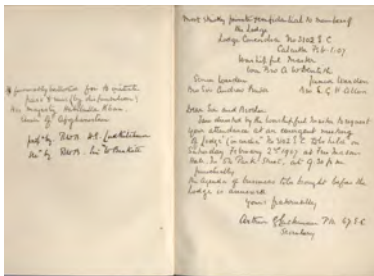 & formally ballotted for to initiate
pass & raise (by dispensation)
His Majesty Habibullah Khan.
Amir of Afghanistan
propd by. R.W.B. Ld Kitchener
Sir
Most strictly private & confidential to Members of
the Lodge
Lodge Concordia No 3102 E.C.
Calcutta
Worshipful Master
Wor Bro A. M
Senior Warden Junior Warden
Bro Sir Andrew Fraser Bro
Dear Sir and Brother
I am directed by the Worshipful Master to request
your attendance at an emergent meeting
of Lodge "Concordia" No 3102 E.C. to be held on
Saturday February 2nd 1907 at Freemasons
Hall. No 55 Park Street, at 9.30 pm
punctually
The agenda of business to be brought before the
Lodge is annexed
Yours fraternally
Arthur P.M. E.C.
Secretary